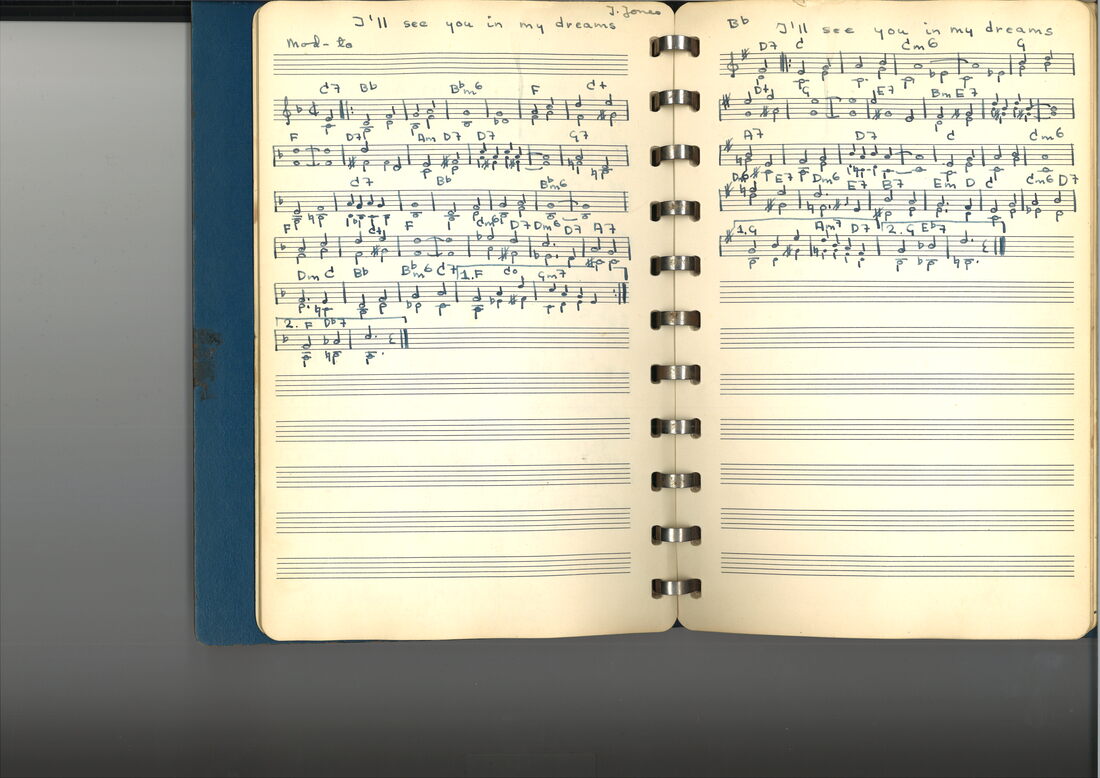 J. Jones
I'll see you in my dreams
Mod-to
C7 Bb Bbm6 F C+
F D7 Am D7 D7 G7
C7 Bb Bbm6
F C+ F Cm6 D7 Dm6 D7 A7
Dm C Bb Bbm6 C7 1.F Co Gm7
2. F Db7
Bb
I'll see you in my dreams
D7 C Cm6 G
D+ G E7 Bm E7
A7 D7 C Cm6
E7 Dm6 E7 B7 Em D C Cm6 D7
1.G Am7 D7 2. G Eb7